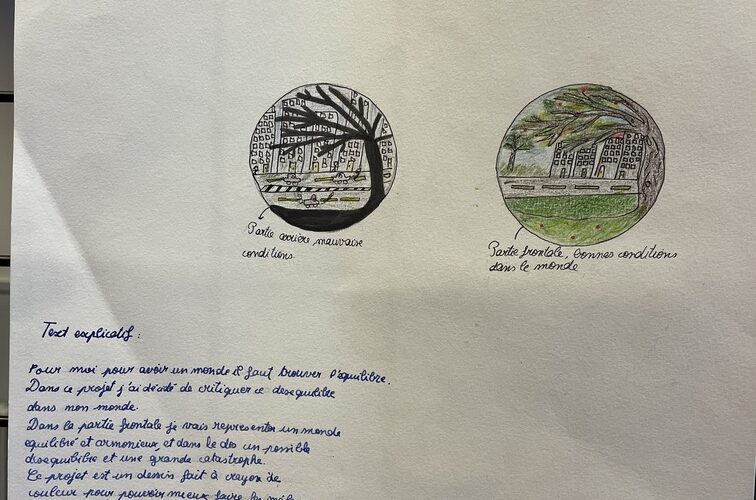 Partie arrière mauvaise
conditions
Partie frontale, bonnes conditions
dans le monde
Text explicatif :
Pour moi pour avoir un monde il faut trouver l'équilibre.
Dans ce projet j'ai décidé de critiquer ce desequilibre
dans mon monde.
Dans la partie frontale je vais representer un monde
equilibré et armonieux, et dans le dos un possible
desequilibre et une grande catastrophe.
Ce projet est un dessin fait à crayon de
couleur pour pouvoir mieux faire les